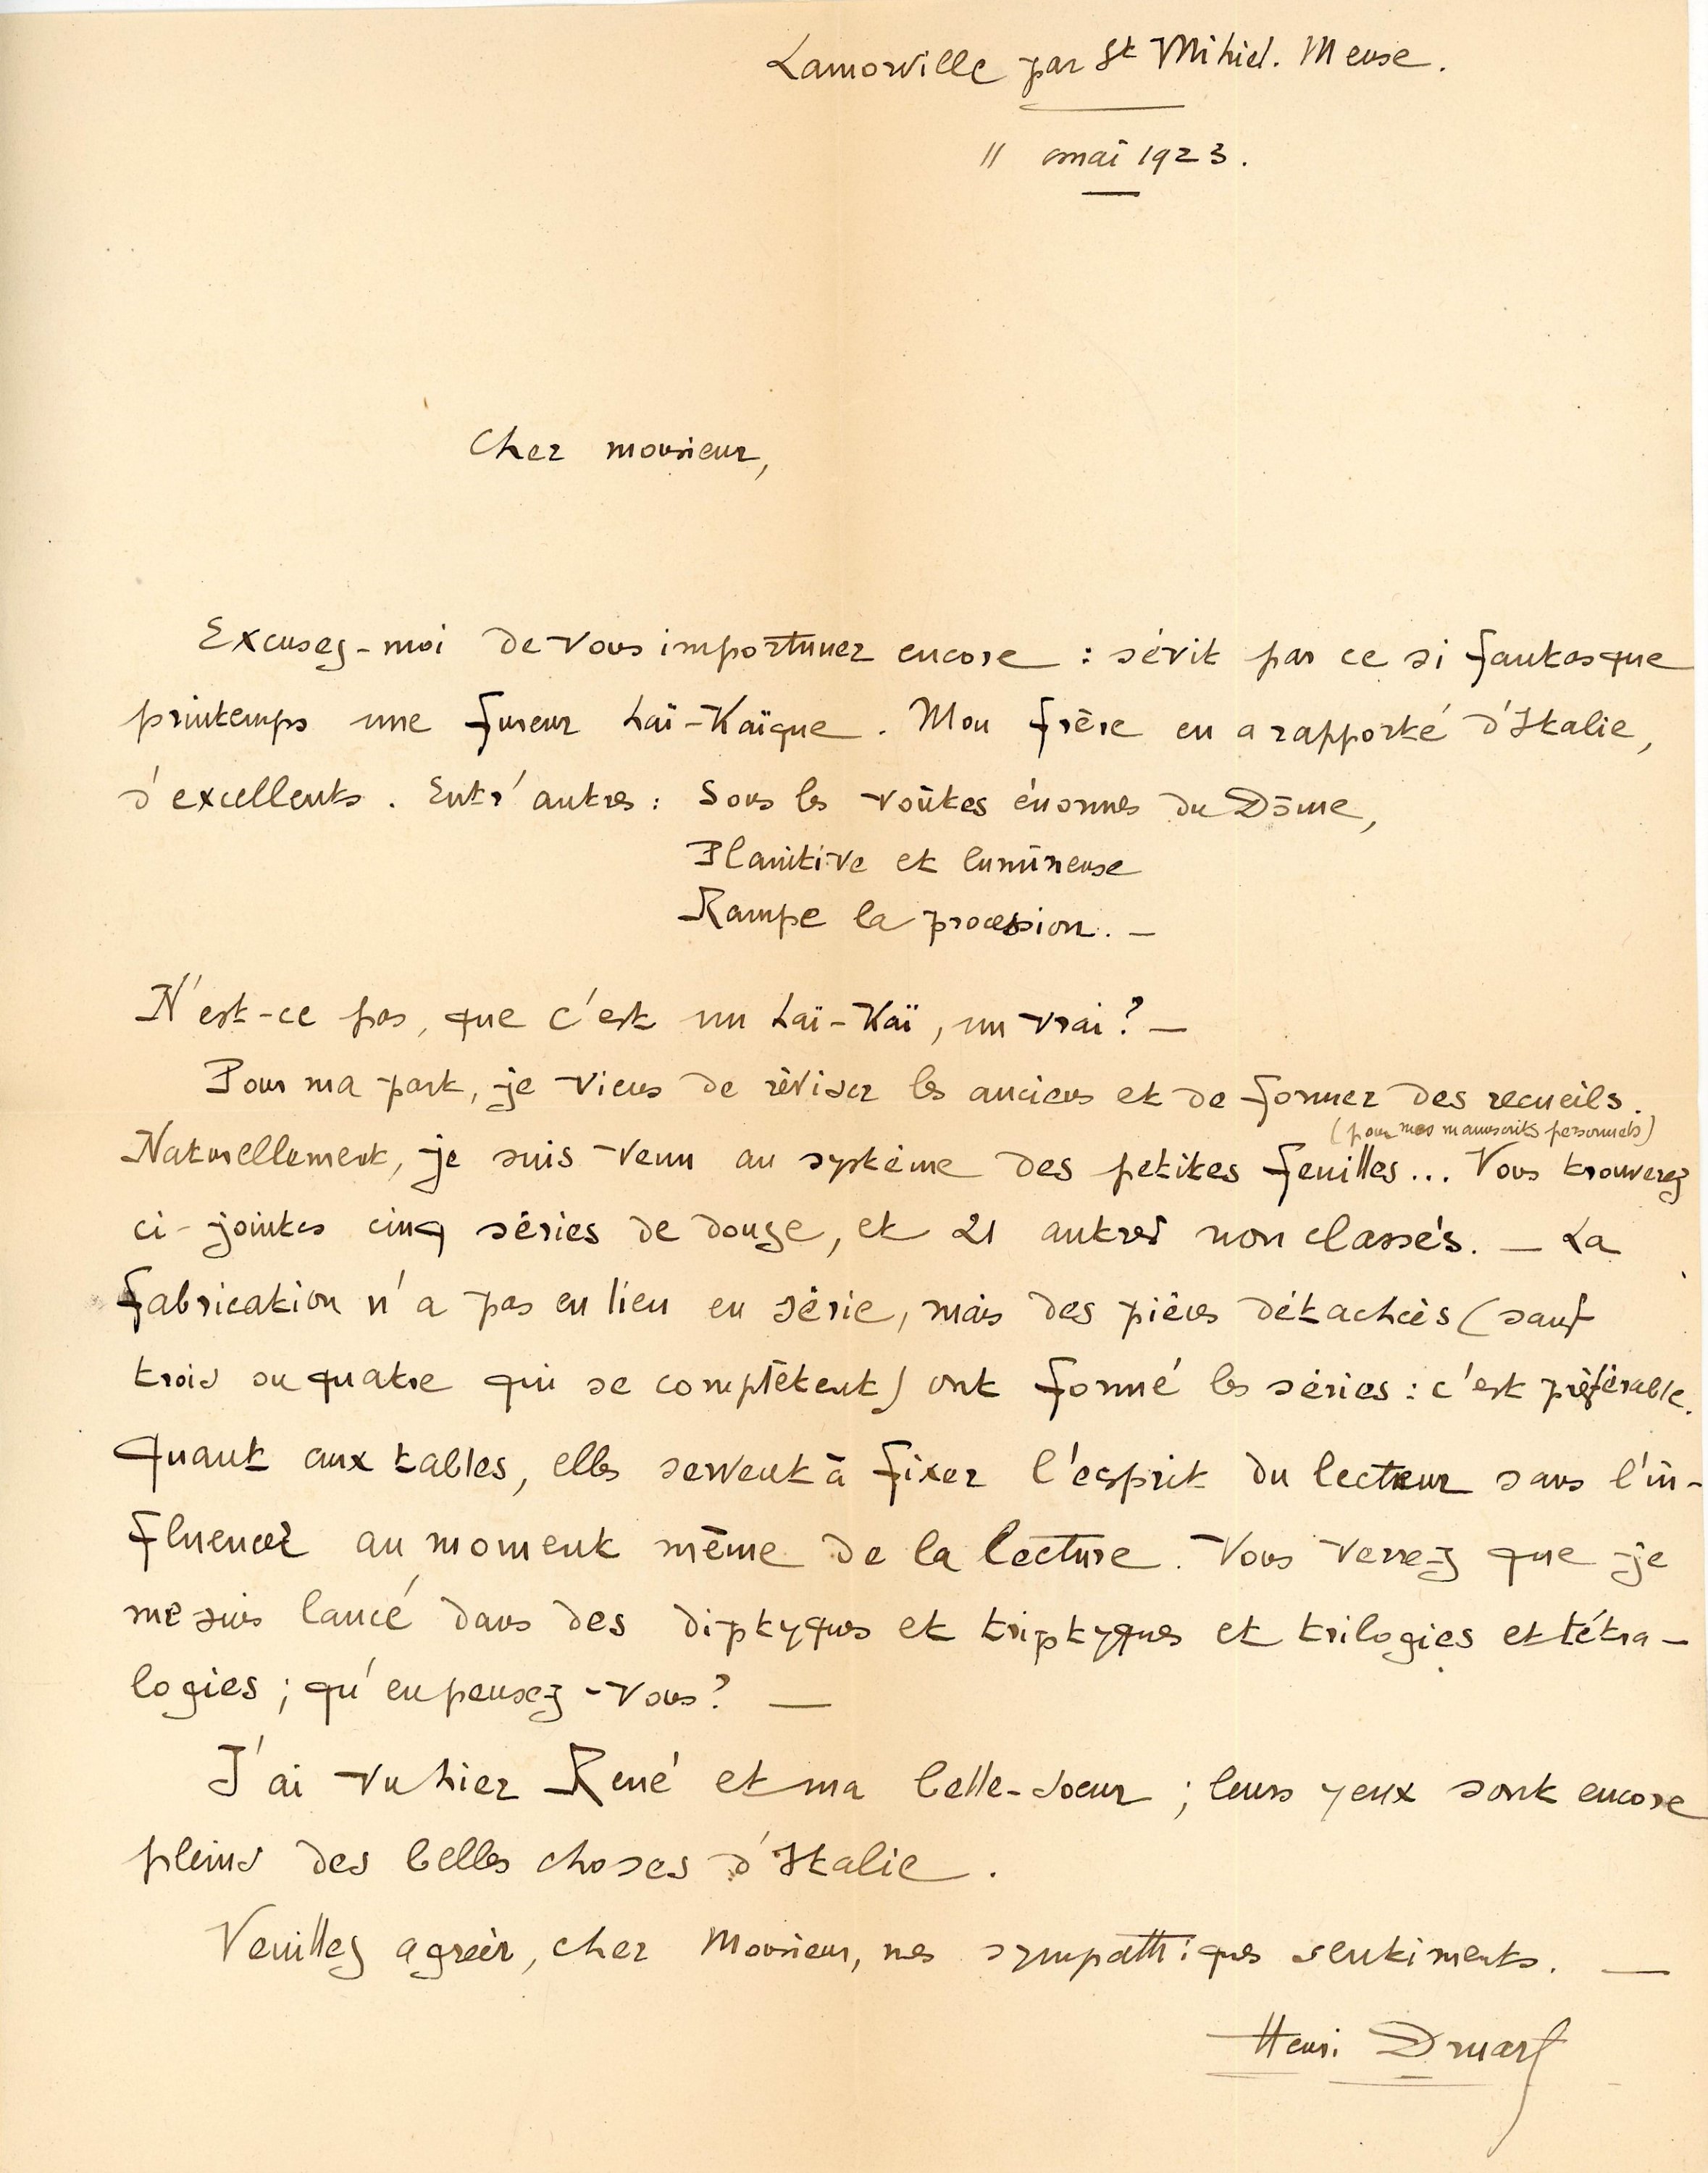 Lamorville par St Mihiel. Meuse.
11 mai 1923.
Cher monsieur,
Excusez-moi de vous importuner encore : sévit par ce si fantasque
printemps une fureur haï-Kaïque. Mon frère en a rapporté d'Italie,
d'excellents. Entr'autres : Sous les voûtes énormes du Dôme,
Plaintive et lumineuse
Rampe la procession. —
N'est-ce pas, que c'est un haï-Kaï, un vrai ? —
Pour ma part, je viens de réviser les anciens et de former des recueils.
(pour mes manuscrits personnels)
Naturellement, je suis venu au système des petites feuilles... Vous trouverez
ci-jointes cinq séries de douze, et 21 autres non classés. — La
fabrication n'a pas eu lieu en série, mais des pièces détachées (sauf
trois ou quatre qui se complètent) ont formé les séries : c'est préférable.
Quant aux tables, elles servent à fixer l'esprit du lecteur sans l'in-
fluencer au moment même de la lecture. Vous verrez que je
me suis lancé dans des diptyques et triptyques et trilogies et tétra-
logies ; qu'en pensez-vous ? —
J'ai vu hier René et ma belle-soeur ; leurs yeux sont encore
pleins des belles choses d'Italie.
Veuillez agréer, cher Monsieur, mes sympathiques sentiments. —
Henri Druart